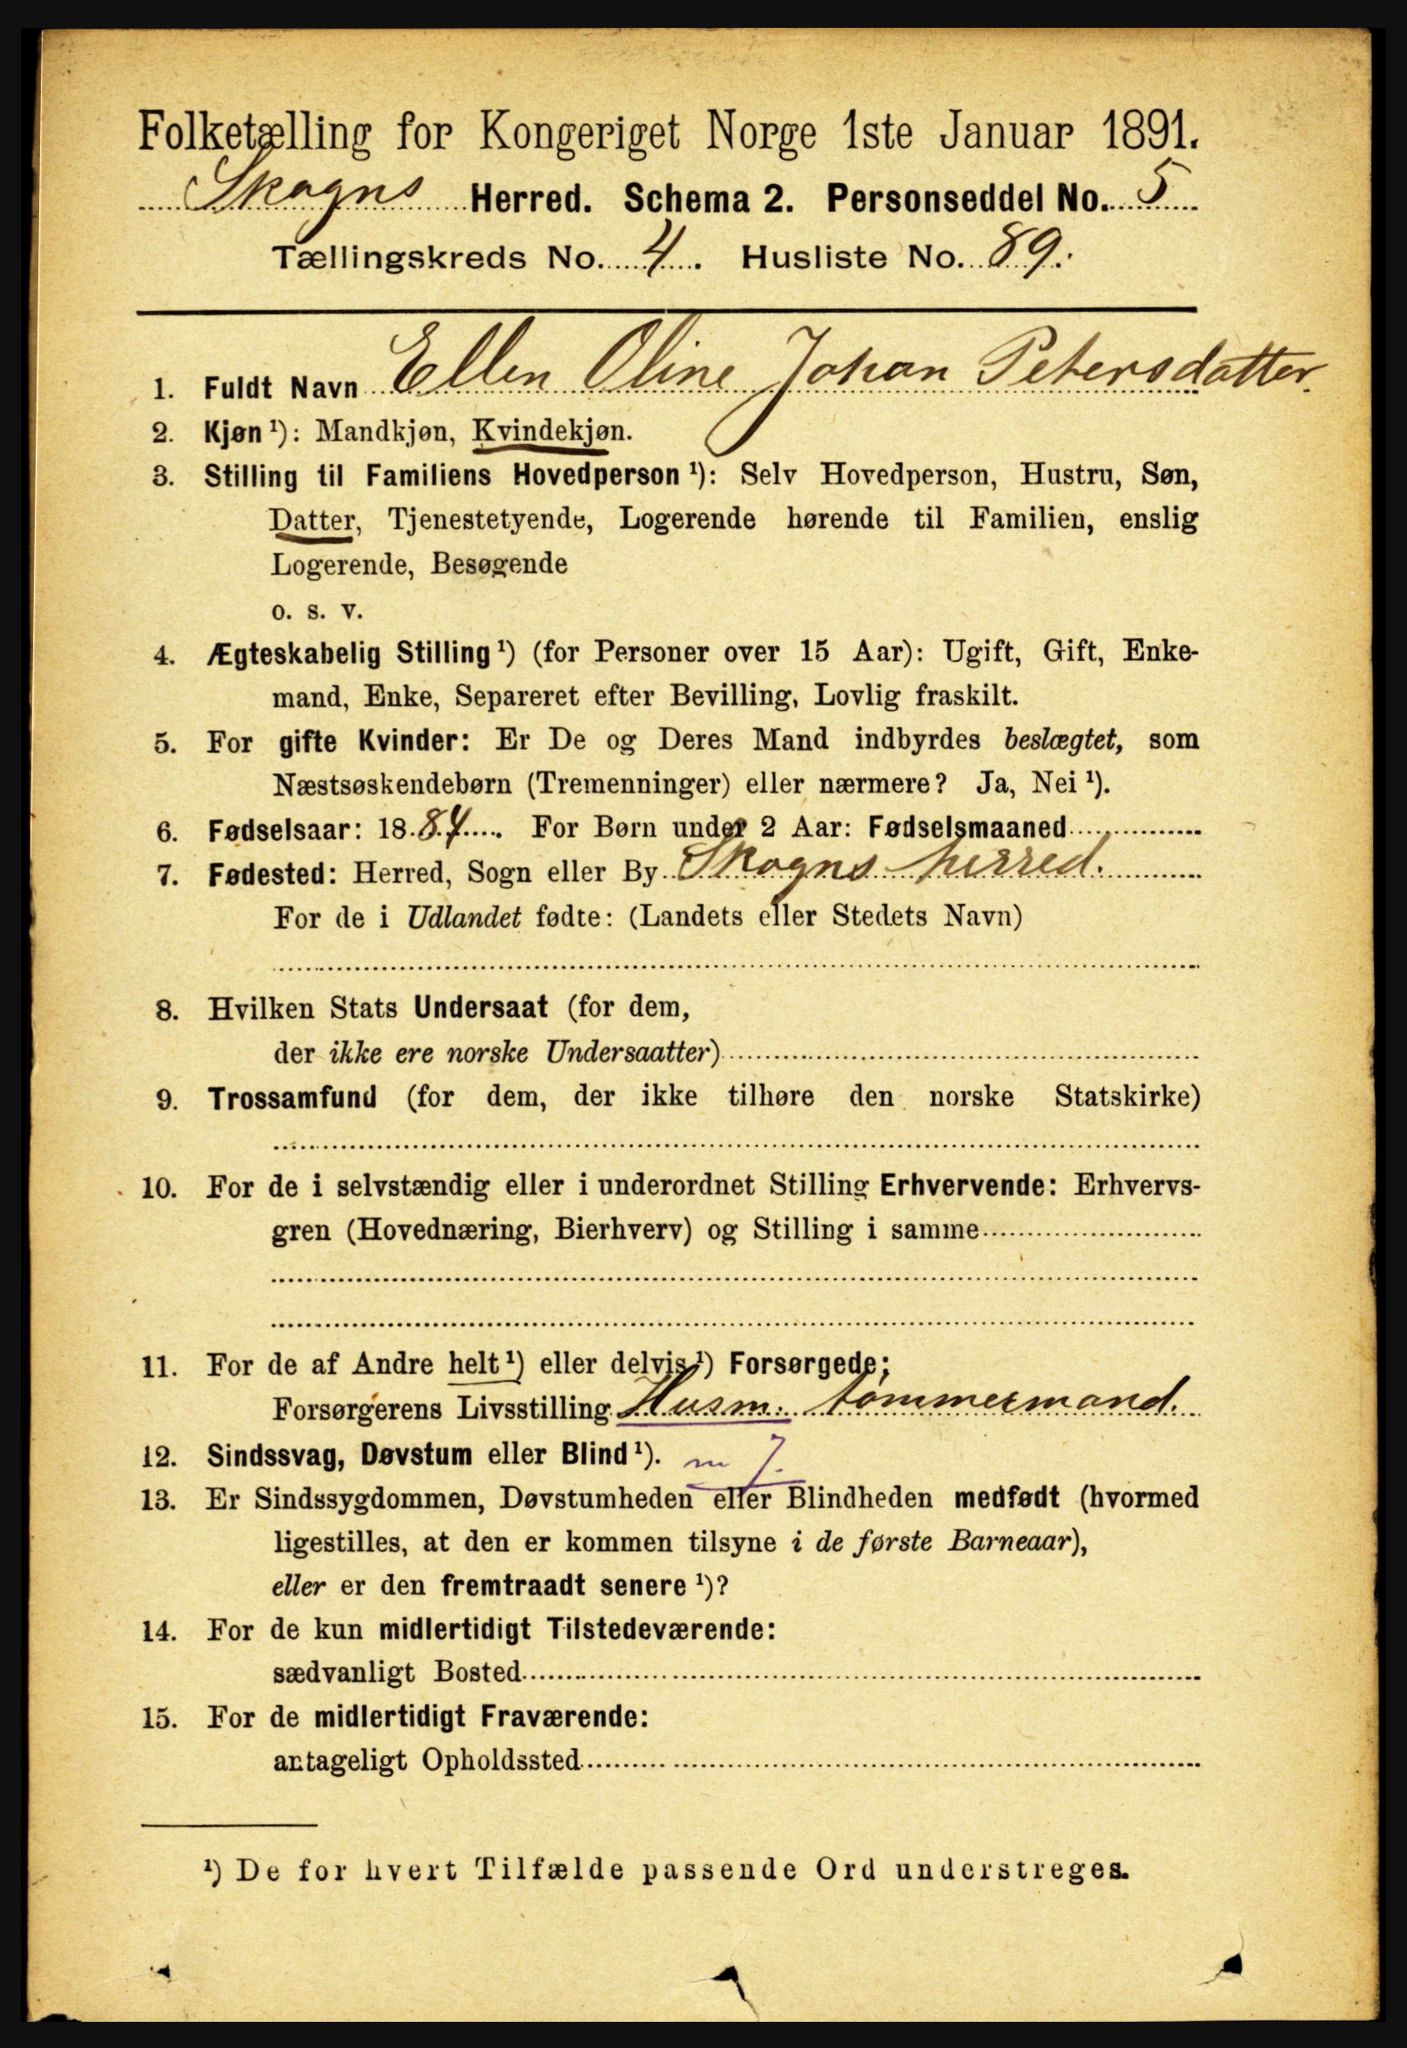 Folketælling for Kongeriget Norge 1ste Januar 1891.
Skogns Herred. Schema 2. Personseddel No. 5
Tællingskreds No. 4. Husliste No. 89.
1. Fuldt Navn Ellen Oline Johan Petersdatter.
2. Kjøn ¹): Mandkjøn, Kvindekjøn.
3. Stilling til Familiens Hovedperson ¹): Selv Hovedperson, Hustru, Søn,
Datter, Tjenestetyende, Logerende hørende til Familien, enslig
Logerende, Besøgende
o. s. v.
4. Ægteskabelig Stilling ¹) (for Personer over 15 Aar): Ugift, Gift, Enke-
mand, Enke, Separeret efter Bevilling, Lovlig fraskilt.
5. For gifte Kvinder: Er De og Deres Mand indbyrdes beslægtet, som
Næstsøskendebørn (Tremenninger) eller nærmere? Ja, Nei ¹).
6. Fødselsaar: 1884. For Børn under 2 Aar: Fødselsmaaned
7. Fødested: Herred, Sogn eller By Skogns herred.
For de i Udlandet fødte: (Landets eller Stedets Navn)
8. Hvilken Stats Undersaat (for dem,
der ikke ere norske Undersaatter)
9. Trossamfund (for dem, der ikke tilhøre den norske Statskirke)
10. For de i selvstændig eller i underordnet Stilling Erhvervende: Erhvervs-
gren (Hovednæring, Bierhverv) og Stilling i samme
11. For de af Andre helt ¹) eller delvis ¹) Forsørgede;
Forsørgerens Livsstilling Husm. tømmermand.
12. Sindssvag, Døvstum eller Blind ¹). m 7.
13. Er Sindssygdommen, Døvstumheden eller Blindheden medfødt (hvormed
ligestilles, at den er kommen tilsyne i de første Barneaar),
eller er den fremtraadt senere ¹)?
14. For de kun midlertidigt Tilstedeværende:
sædvanligt Bosted
15. For de midlertidigt Fraværende:
antageligt Opholdssted
¹) De for hvert Tilfælde passende Ord understreges.